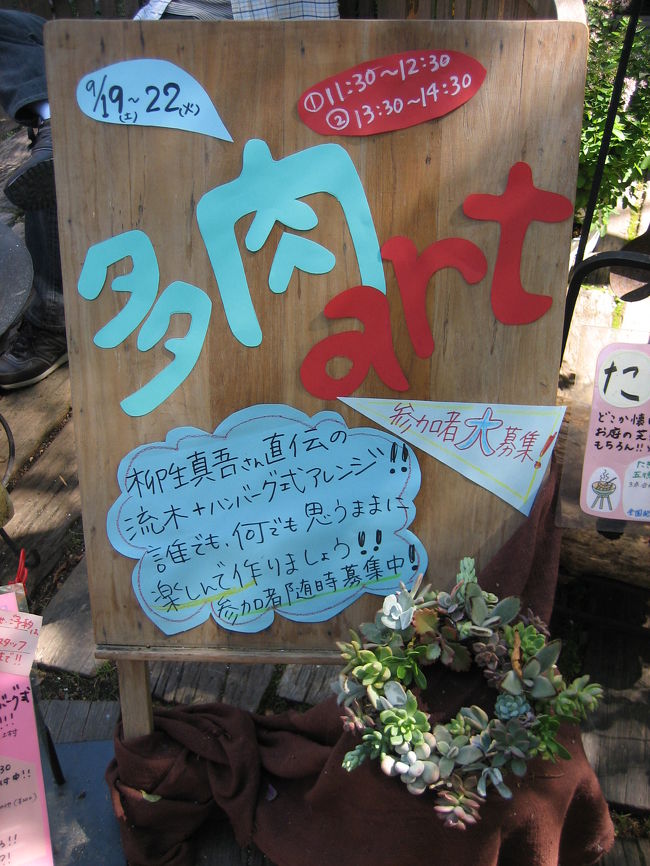 9/19(土)~22(火)
①11:30~12:30
②13:30~14:30
多肉art
参加者大募集!
柳生真吾さん直伝の
流木+ハンバーグ式アレンジ!!
誰でも、何でも思うままに
楽しんで作りましょう!!
参加者随時募集中!
た
どこか懐
お庭の芝
もちろん!!